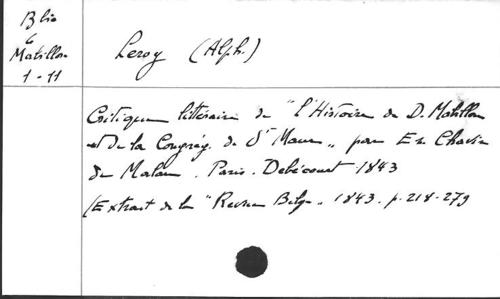 Blio
6
Mabillon
1-11
Leroy (Alph.)
Critique littéraire de "l'Histoire de D. Mabillon
et de la Congrég. de St Maur" par E. Chavin
de Malan. Paris. Debécourt 1843
(Extrait de la "Revue Belge". 1843. p. 218-279